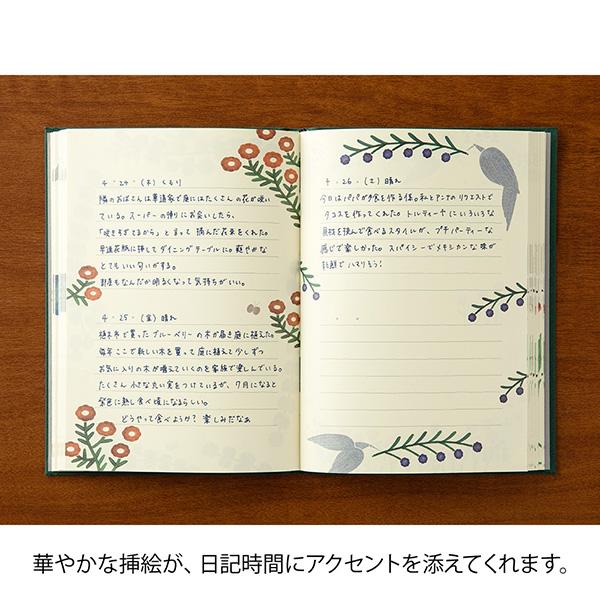 4・24・(木) くもり
隣のおばさんは華道家で庭にはたくさんの花が咲い
ている。スーパーの帰りにお会いしたら、
「咲きすぎてるから」と言って摘んだ花束をくれた。
早速花瓶に挿してダイニングテーブルに。爽やかな
とてもいい匂いがする。
部屋もなんだか明るくなって気持ちがいい。
4・25・(金) 晴れ
植木市で買ったブルーベリーの木が届き庭に植えた。
毎年ここで新しい木を買って庭に植えて少しずつ
お気に入りの木が増えていくのを家族で楽しんでいる。
たくさん小さな丸い実をつけているが、7月になると
紫色に熟し食べ頃になるらしい。
どうやって食べようか? 楽しみだなぁ
4・26・(土) 晴れ
今日はパパが夕食を作る係。私とアンナのリクエストで
タコスを作ってくれた。トルティーヤにいろいろな
具材を挟んで食べるスタイルが、プチパーティーな
感じで楽しかった。スパイシーでメキシカンな味が
新鮮でハマりそう!
華やかな挿絵が、日記時間にアクセントを添えてくれます。